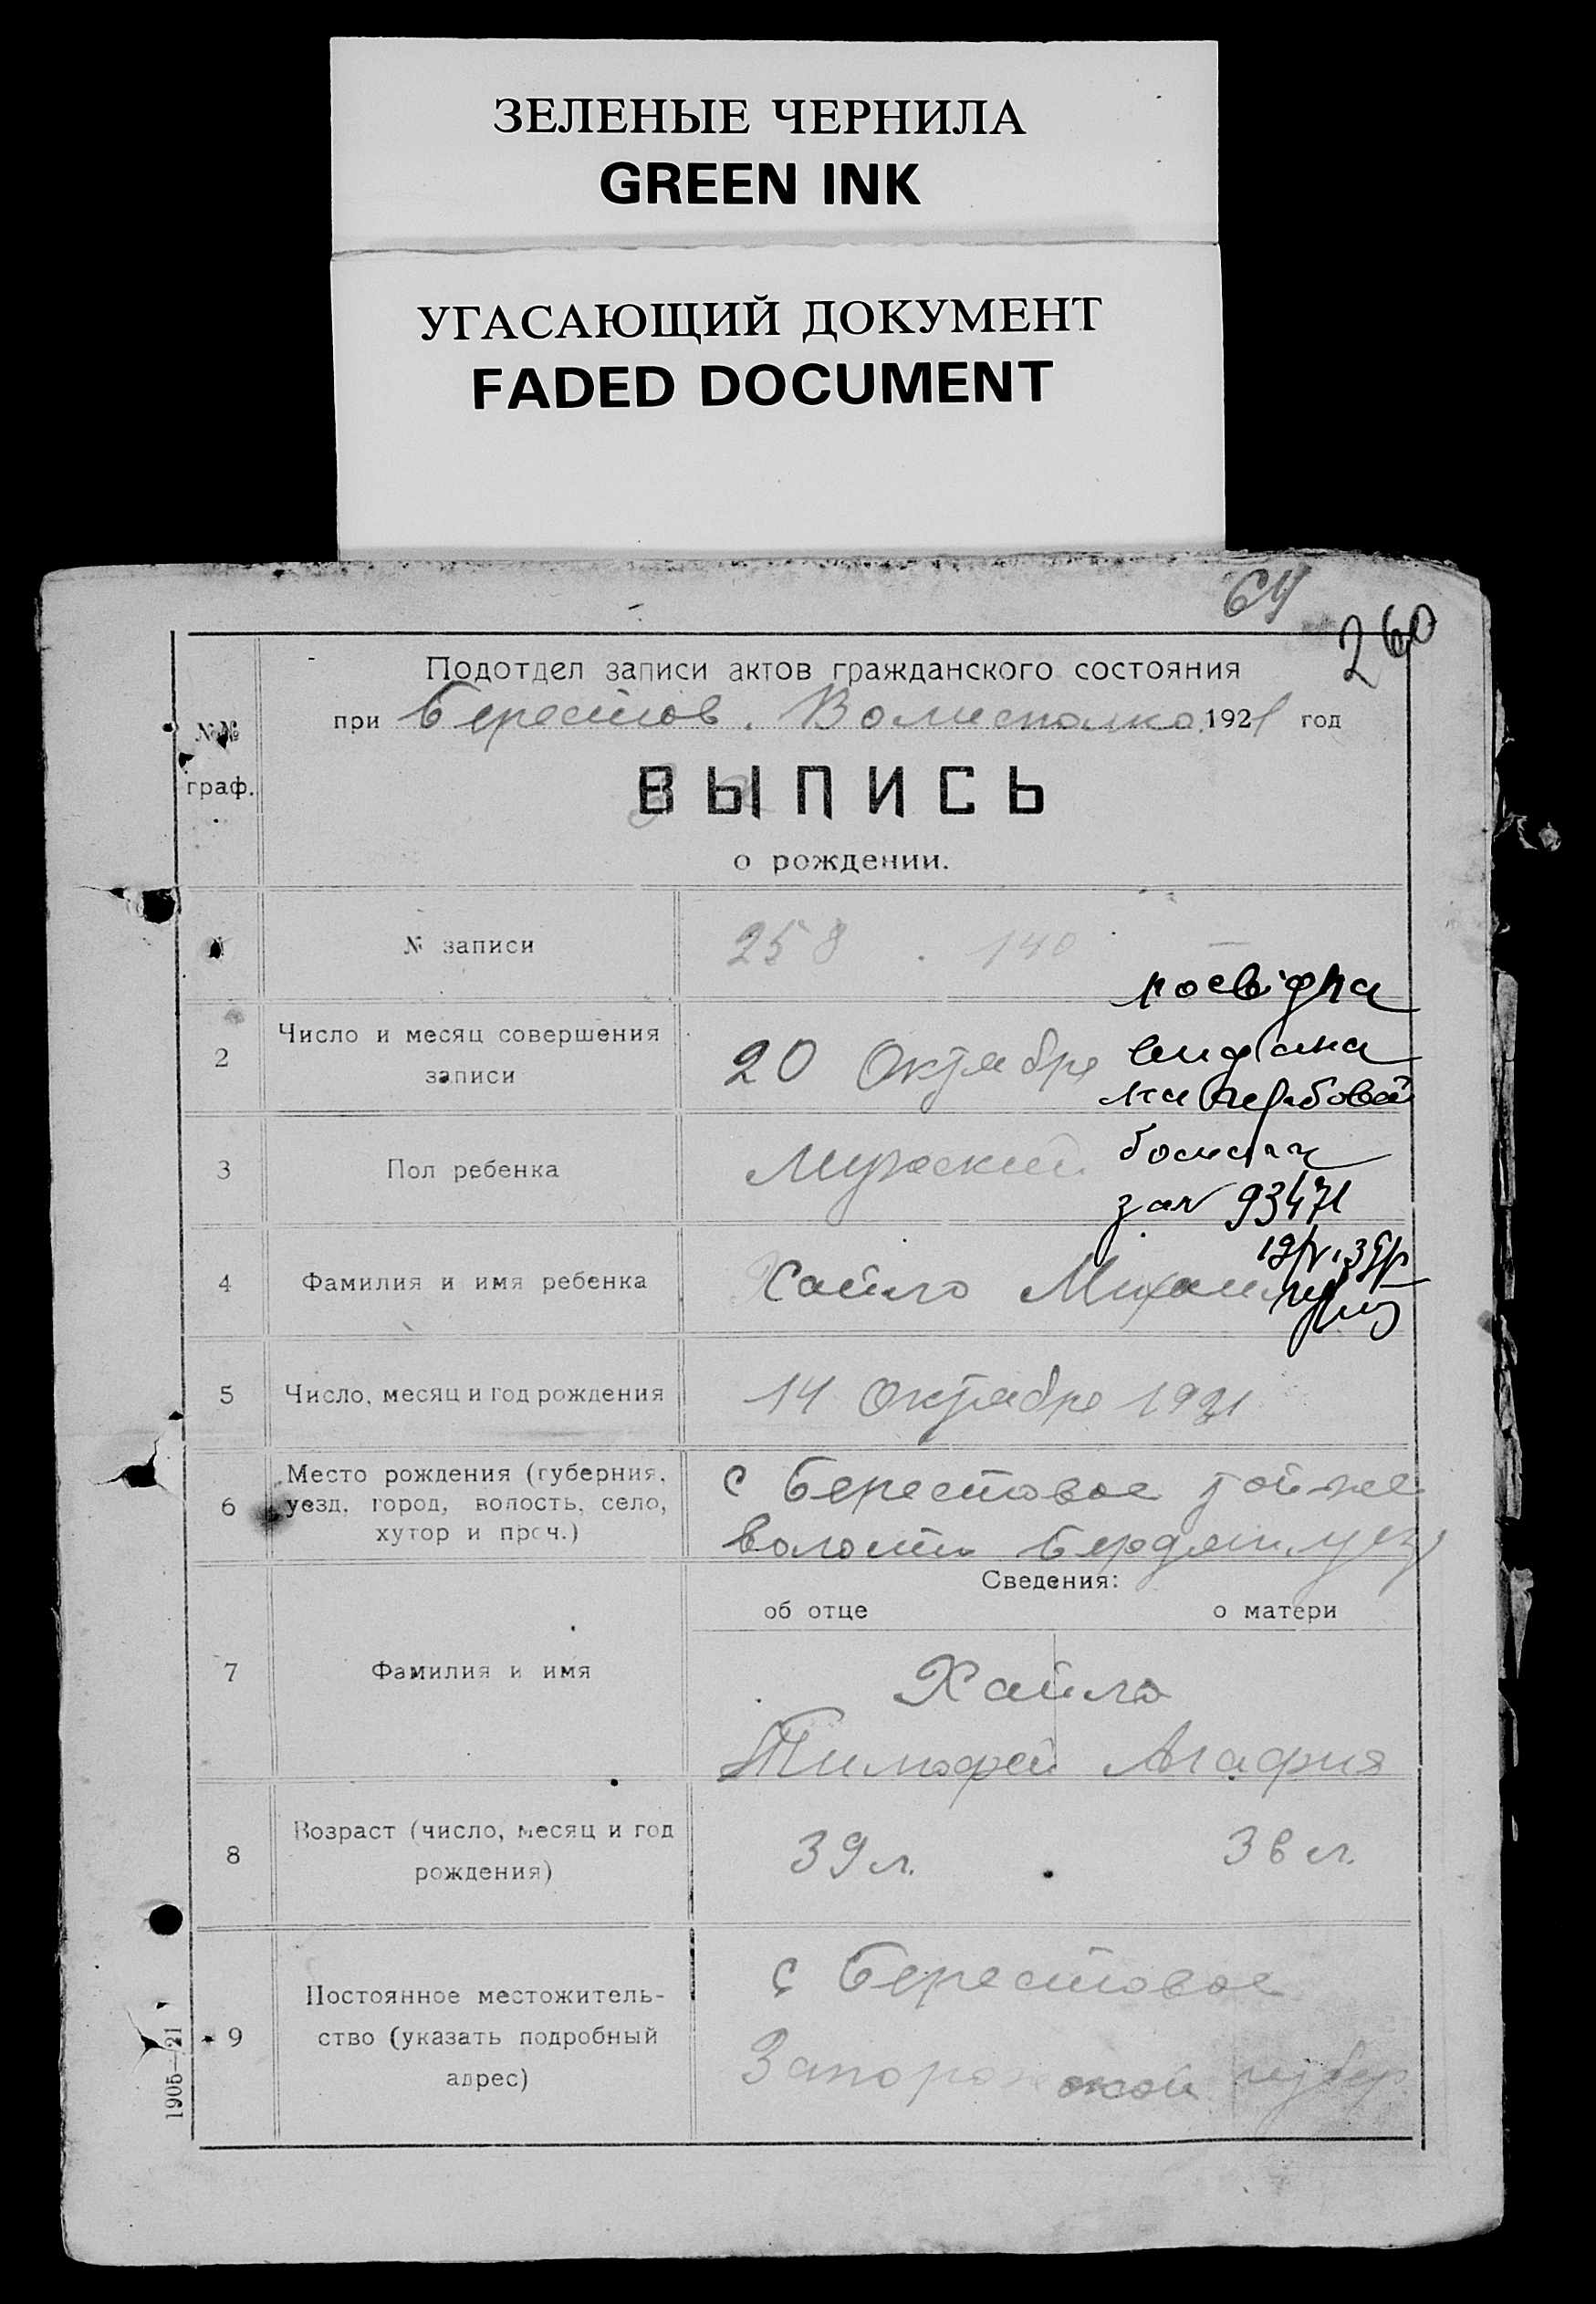 ЗЕЛЕНЫЕ ЧЕРНИЛА
GREEN INK
УГАСАЮЩИЙ ДОКУМЕНТ
FADED DOCUMENT
64
260
№№ граф.
Подотдел записи актов гражданского состояния
при Берестов. Волисполко. 1921 год
ВЫПИСЬ
о рождении.
1 № записи 258 140
2 Число и месяц совершения записи 20 Октября
3 Пол ребенка Мужский
4 Фамилия и имя ребенка Хайло Михаил
посвідка
видана
зая 93471
5 Число, месяц и год рождения 14 Октября 1921
6 Место рождения (губерния, уезд, город, волость, село, хутор и проч.) с Берестовое той же
волости Бердян. уез
Сведения:
об отце о матери
7 Фамилия и имя Хайло
Тимофей Агафия
8 Возраст (число, месяц и год рождения) 39 л. 38 л.
9 Постоянное местожитель-
ство (указать подробный
адрес)
с Берестовое
Запорожской губер
1905—21